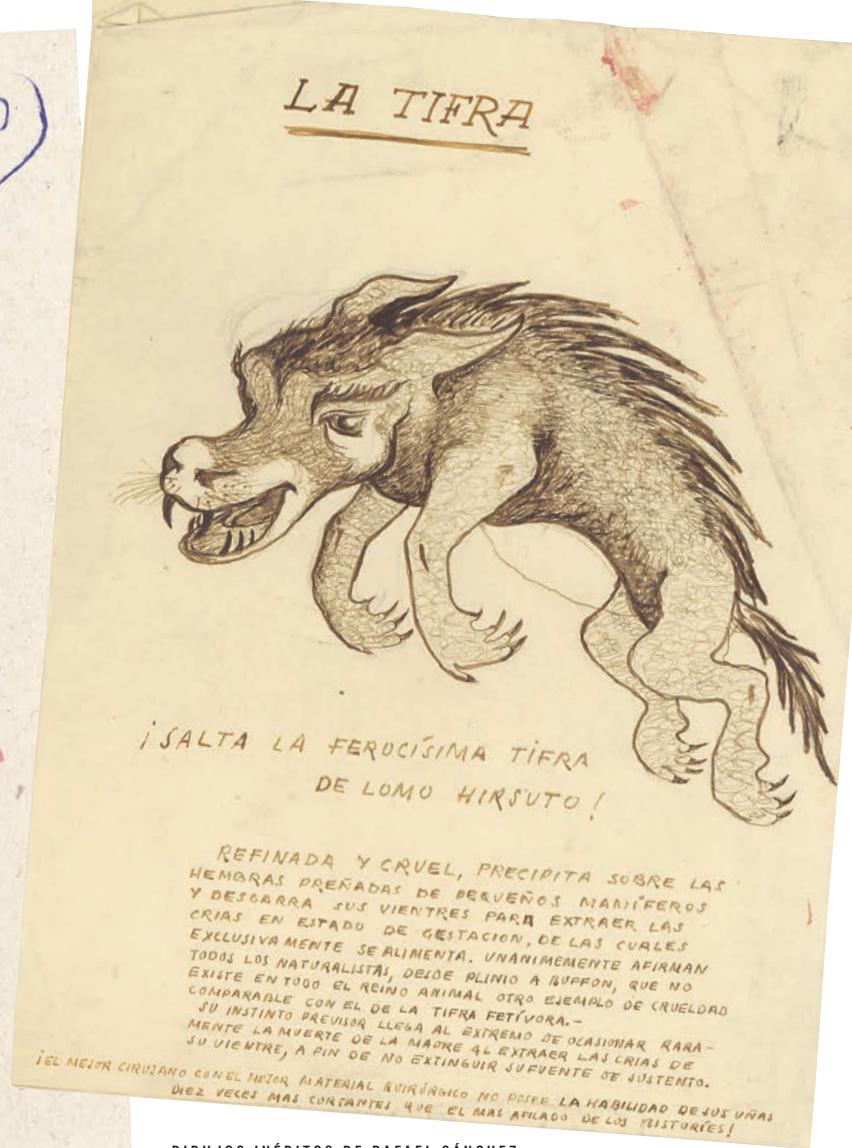 LA TIFRA
¡SALTA LA FEROCÍSIMA TIFRA
DE LOMO HIRSUTO!
REFINADA Y CRUEL, PRECIPITA SOBRE LAS
HEMBRAS PREÑADAS DE PEQUEÑOS MAMÍFEROS
Y DESGARRA SUS VIENTRES PARA EXTRAER LAS
CRIAS EN ESTADO DE GESTACION, DE LAS CUALES
EXCLUSIVAMENTE SE ALIMENTA. UNANIMEMENTE AFIRMAN
TODOS LOS NATURALISTAS, DESDE PLINIO A BUFFON, QUE NO
EXISTE EN TODO EL REINO ANIMAL OTRO EJEMPLO DE CRUELDAD
COMPARABLE CON EL DE LA TIFRA FETÍVORA.-
SU INSTINTO PREVISOR LLEGA AL EXTREMO DE OCASIONAR RARA-
MENTE LA MUERTE DE LA MADRE AL EXTRAER LAS CRIAS DE
SU VIENTRE, A FIN DE NO EXTINGUIR SU FUENTE DE SUSTENTO.
¡EL MEJOR CIRUJANO CON EL MEJOR MATERIAL QUIRÚRGICO NO POSEE LA HABILIDAD DE SUS UÑAS
DIEZ VECES MAS CORTANTES QUE EL MAS AFILADO DE LOS BISTURÍES!
DIBUJOS INÉDITOS DE RAFAEL SÁNCHEZ